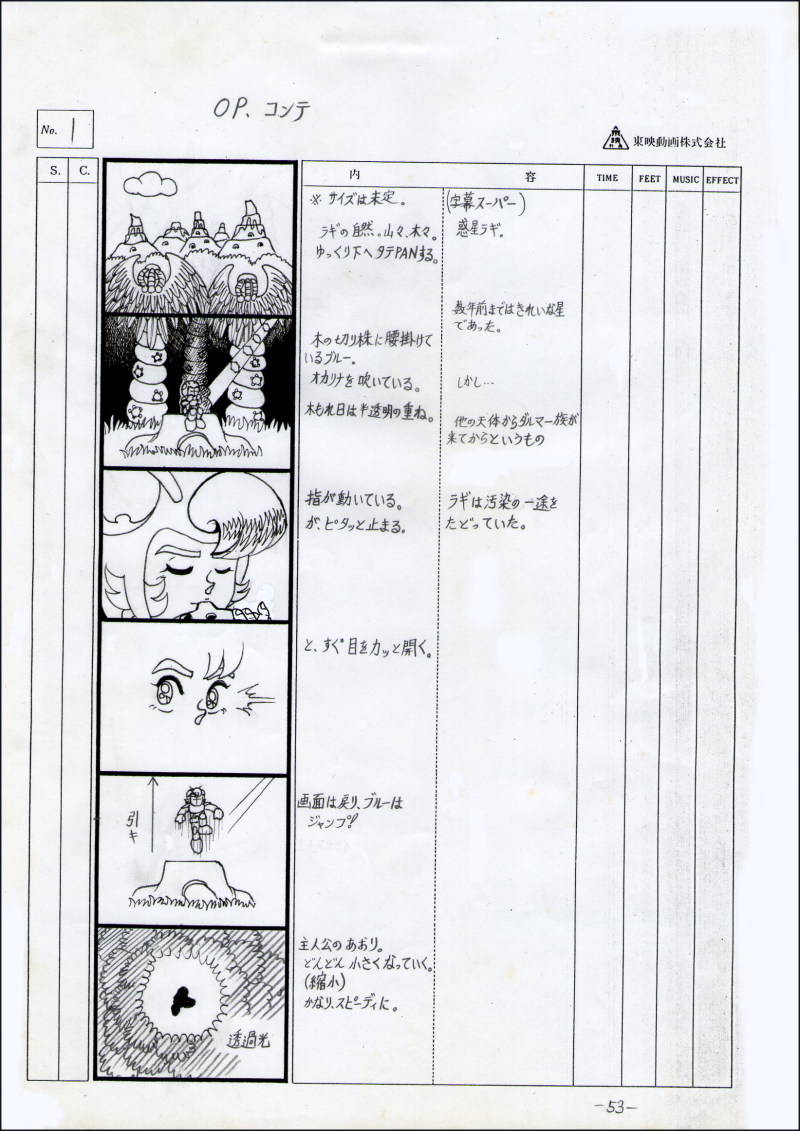 OP. コンテ
No. 1
東映動画株式会社
S. C. 内 容 TIME FEET MUSIC EFFECT
※ サイズは未定。
ラギの自然。山々、木々。
ゆっくり下へタテPANする。
(字幕スーパー)
惑星ラギ。
数年前まではきれいな星
であった。
木の切り株に腰掛けて
いるブルー。
オカリナを吹いている。
木もれ日は半透明の重ね。
しかし…
他の天体からダルマー族が
来てからというもの
指が動いている。
が、ピタッと止まる。
ラギは汚染の一途を
たどっていた。
と、すぐ目をカッと開く。
引キ
画面は戻り、ブルーは
ジャンプ!
主人公のあおり。
どんどん小さくなっていく。
(縮小)
かなり、スピーディに。
透過光
-53-